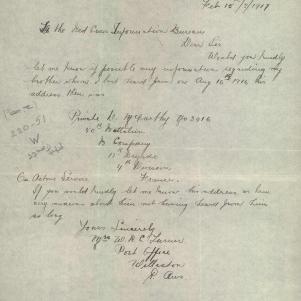 Feb 15th/1917
To the Red Cross Information Bureau
Dear Sir
Would you kindly
let me know if possible any information regarding my
brother whom I last heard from on Aug 16th 1916 his
address then was
Private D. McCarthy No 3916
50th Battalion
D Company
13th Brigade
4th Division
On Active Service France
If you would kindly let me know his address or have
any news about him not having heard from him
so long
Yours Sincerely
Mrs W. R. C. Turner
Post Office
Willaston
S. Aus